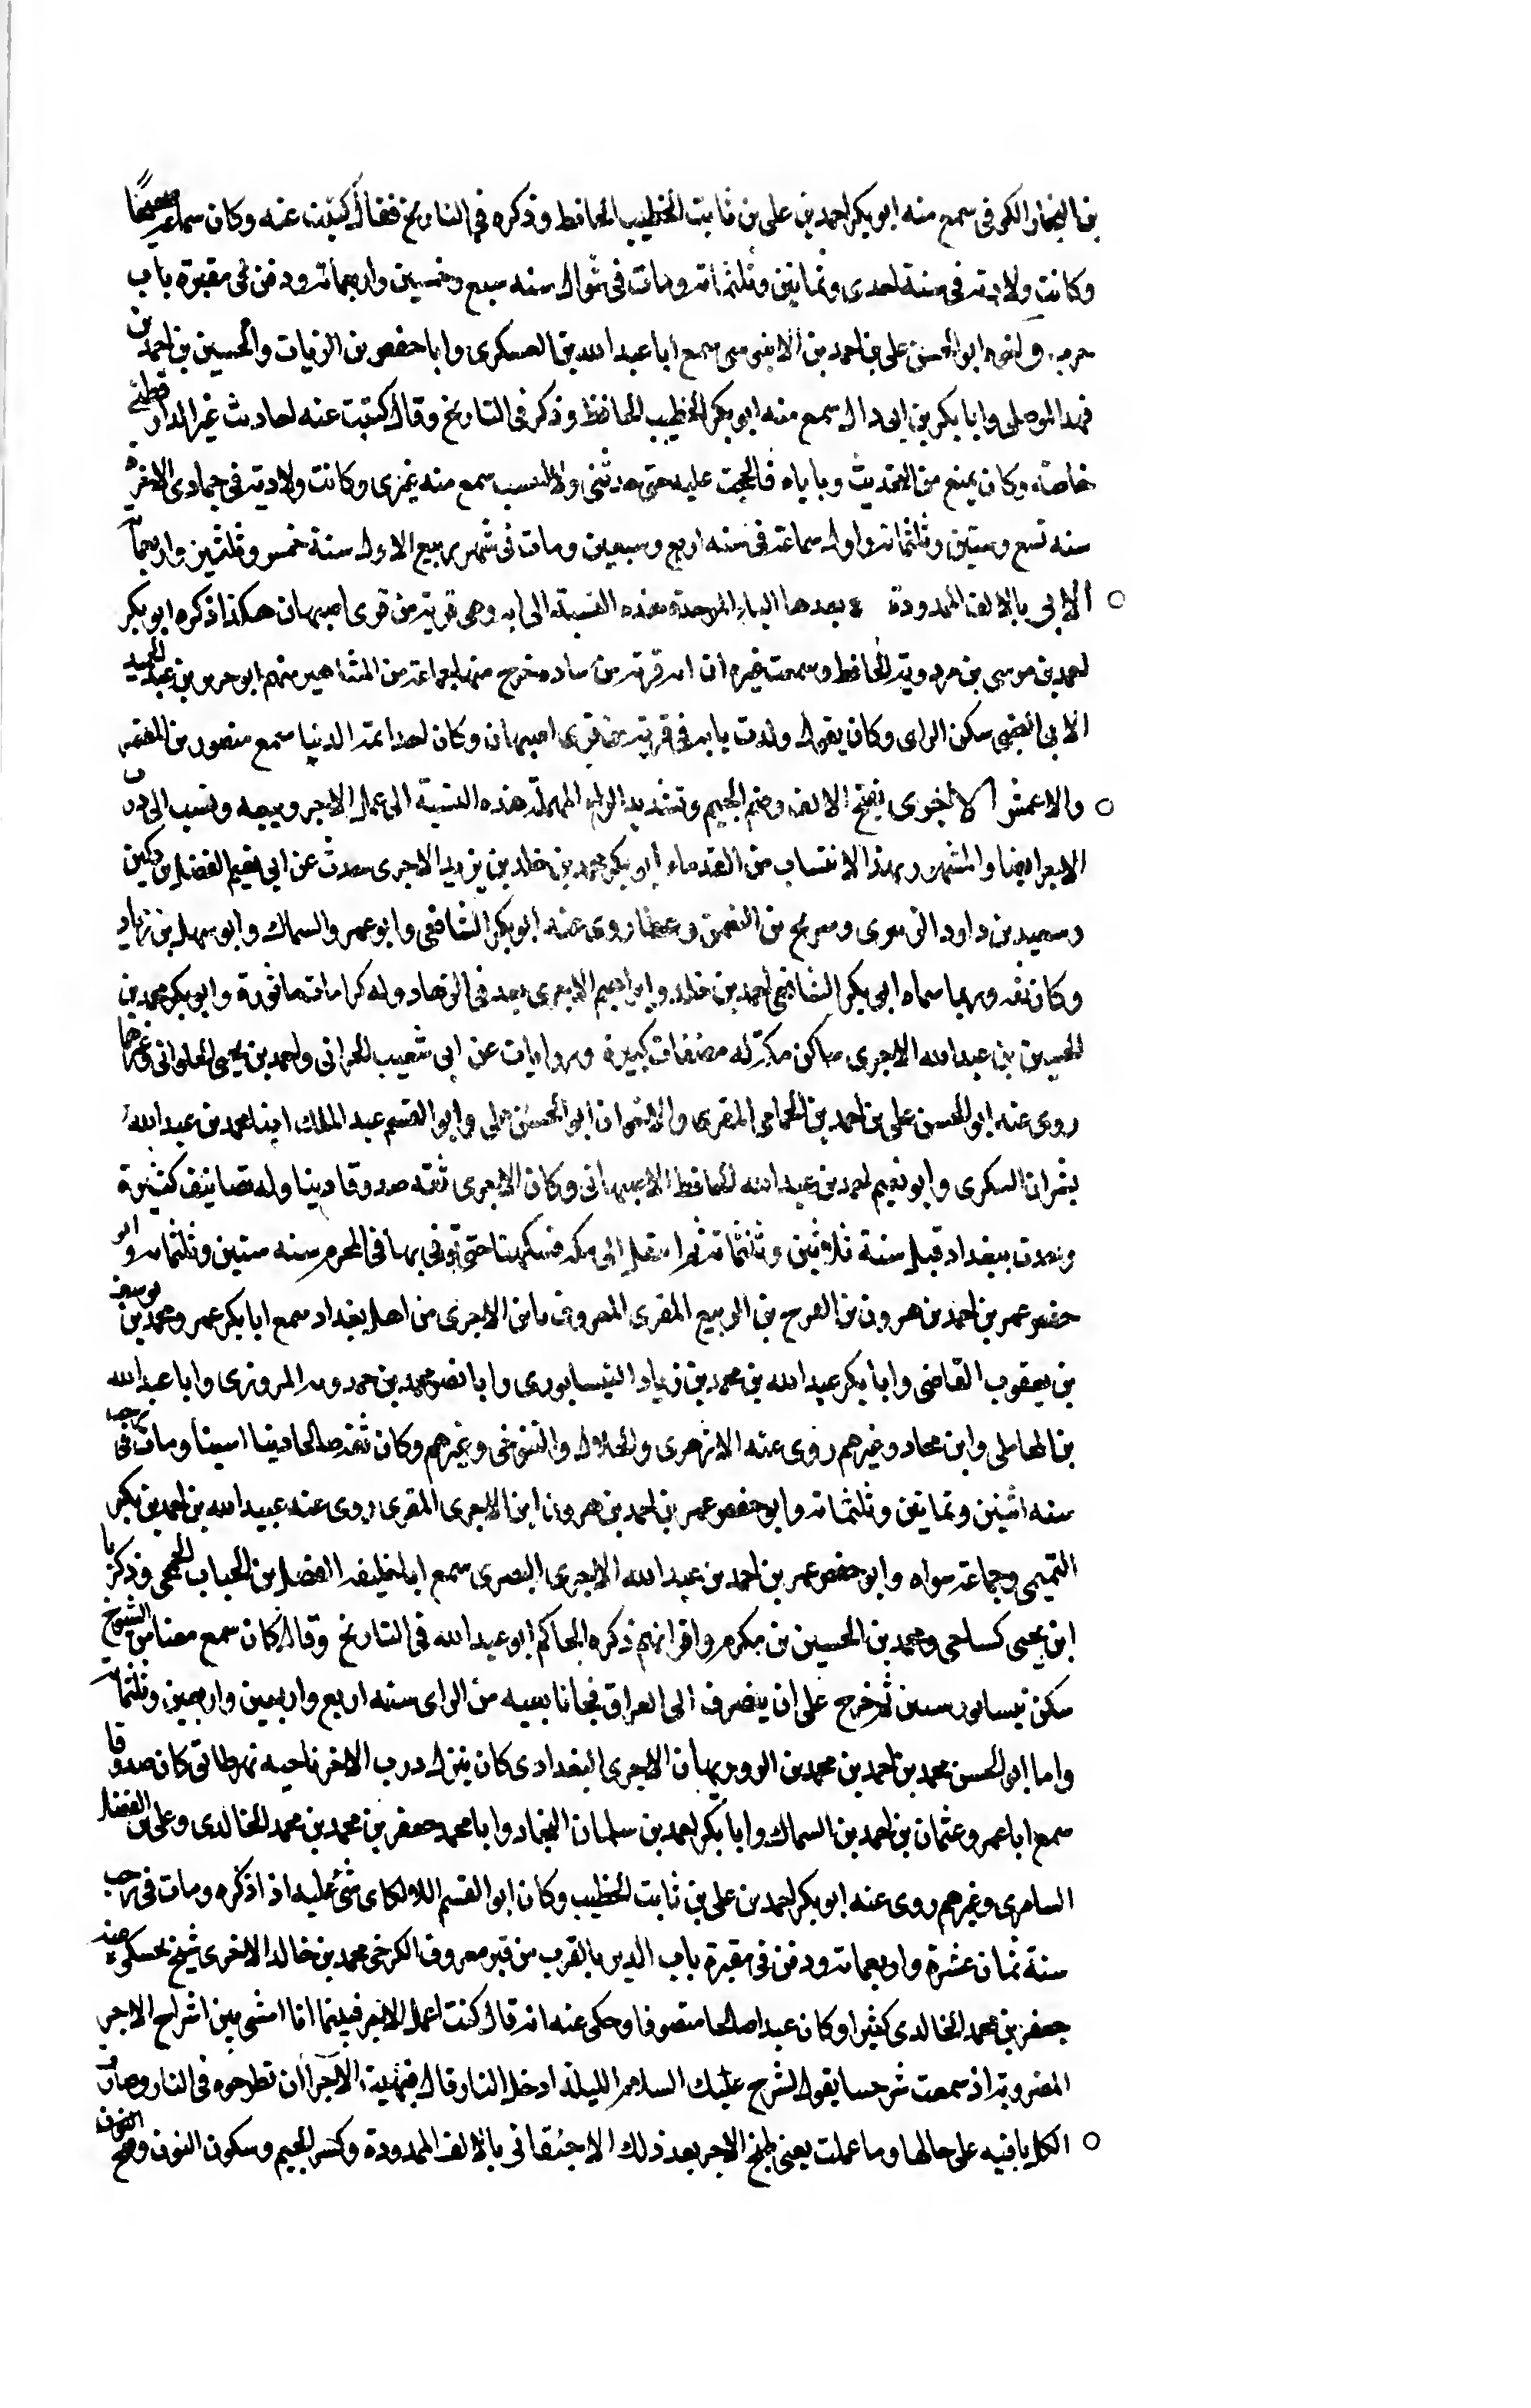 بن النجار الكوفى سمع منه ابو بكر احمد بن على بن ثابت الخطيب الحافظ وذكره فى التاريخ فقال كتبت عنه وكان سماعه صحيحًا
وكانت ولادته فى سنة احدى وثمانين وثلثمائه ومات فى شوال سنه سبع وخمسين واربعمائه ودفن فى مقبرة باب
حرب واخوه ابو الحسن على بن احمد بن الابنوسى سمع ابا عبد الله بن العسكرى وابا حفص بن الزيات والحسين بن احمد بن
فهد الموصلى وابا بكر بن سمع منه ابو بكر الخطيب الحافظ وذكر فى التاريخ وقال كتبت عنه احاديث غير الدارقطنى
خاصة وكان يمتنع من التحديث وياباه فالححت عليه حتى حدثنى ولا احسب سمع منه غيرى وكانت ولادته فى جمادى الاخرة
سنه تسع وستين وثلثمائه واول سماعه فى سنه اربع وسبعين ومات فى شهر ربيع الاول سنة خمس وثلثين واربعمائة
الابى بالالف الممدودة وبعدها الباء الموحدة هذه النسبة الى ابه وهى قرية من قرى اصبهان هكذا ذكره ابو بكر
احمد بن موسى بن مردويه الحافظ وسمعت غيره ان ابه قرية من ساوه خرج منها جماعة من المشاهير منهم ابو جرير بن عبد الحميد
الابى الضبى سكن الراى وكان يقول ولدت بابه فى قرية من قرى اصبهان وكان احد ائمة الدنيا سمع منصور بن المعتمر
والاعمش الاجرى بفتح الالف وضم الجيم وتشديد الراء المهملة هذه النسبة الى عمل الاجر وبيعه ونسب الى درب
الاجر ايضا والمشهور بهذا الانتساب من القدماء ابو بكر محمد بن خالد بن يزيد الاجرى حدث عن ابى نعيم الفضل بن دكين
وسعيد بن داود الزبيرى وسريج بن النعمن وعفان روى عنه ابو بكر الشافعى وابو عمرو السماك وابو سهل بن زياد
وكان ثقه وربما سماه ابو بكر الشافعى احمد بن خالد وابراهيم الاجرى يعد فى الزهاد وله كرامات ماثورة وابو بكر محمد بن
الحسين بن عبد الله الاجرى ساكن مكة له مصنفات كبيرة وروايات عن ابى شعيب الحرانى واحمد بن يحيى الحلوانى وغيرهما
روى عنه ابو الحسن على بن احمد بن الحمامى المقرى والاخوان ابو الحسن على وابو القسم عبد الملك ابنا محمد بن عبد الله
بشران السكرى وابو نعيم احمد بن عبد الله الحافظ الاصبهانى وكان الاجرى ثقه صدوقا دينا وله تصانيف كثيرة
وحدث ببغداد قبل سنة ثلاثين وثلثمائه ثم انتقل الى مكه فسكنها حتى توفى بها فى المحرم سنه ستين وثلثمائه وابو
حفص عمر بن احمد بن هرون بن الفرج بن الربيع المقرى المعروف بابن الاجرى من اهل بغداد سمع ابا بكر عمر ومحمد بن يوسف
بن يعقوب القاضى وابا بكر عبد الله بن محمد بن زياد النيسابورى وابا نصر محمد بن حمدويه المروزى وابا عبد الله
بن المحاملى وابن مخلد وغيرهم روى عنه الازهرى والخلال والتنوخى وغيرهم وكان ثقه صالحا دينا امينا ومات فى رجب
سنه اثنين وثمانين وثلثمائه وابو حفص عمر بن احمد بن هرون ابن الاجرى المقرى روى عنه عبيد الله بن احمد بن بكير
التميمى وجماعة سواه وابو حفص عمر بن احمد بن عبد الله الاجرى البصرى سمع ابا خليفه الفضل بن الحباب الجمحى وذكريا
ابن يحيى ومحمد بن الحسين بن مكرم واقرانهم ذكره الحاكم ابو عبد الله فى التاريخ وقال كان سمع معنا من الشيوخ
سكن نيسابور سنين ثم خرج على ان ينصرف الى العراق فجانا نعيه من الراى سنه اربع واربعين واربعين وثلثمائة
واما ابى الحسن محمد بن احمد بن محمد بن الاجرى البغدادى كان ينزل درب الاجر ناحيه نهر طابق كان صدوقا
سمع ابا عمرو عثمان بن احمد بن السماك وابا بكر احمد بن سلمان النجاد وابا محمد جعفر بن محمد بن محمد الخالدى وعلى بن الفضل
السامرى وغيرهم روى عنه ابو بكر احمد بن على بن ثابت الخطيب وكان ابو القسم اللالكاى عليه اذا ذكره ومات فى رجب
سنة ثمان عشرة واربعمائه ودفن فى مقبرة باب الدير بالقرب من قبر معروف الكرخى محمد بن خالد الاجرى شيخ حكى عنه
جعفر بن محمد الخالدى كثيرا وكان عبدا صالحا متصوفا وحكى عنه انه قال كنت اعمل الاجر فبينما انا امشى بين اشراج الاجر
المضروبة اذ سمعت شرجا يقول لشرج عليك السلام الليلة ادخل النار قال فنهيت الاجرا ان تطرحوه فى النار وصار
الكل باقيه على حالها وما عملت يعنى طبخ الاجر بعد ذلك الاجنقانى بالالف الممدودة وكسر الجيم وسكون النون وفتح القاف